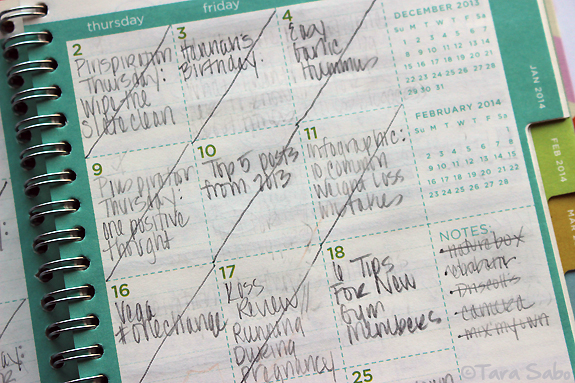 thursday
friday
2
Pinspiration
Thursday:
Wipe the
slate clean
3
Hannah's
Birthday
4
Easy
Garlic
Hummus
DECEMBER 2013
Su M T W T F S
1 2 3 4 5 6 7
8 9 10 11 12 13 14
15 16 17 18 19 20 21
22 23 24 25 26 27 28
29 30 31
JAN 2014
FEB 2014
MAR
9
Pinspiration
Thursday:
one positive
thought
10
Top 5 posts
from 2013
11
Infographic:
10 common
Weight loss
mistakes
FEBRUARY 2014
Su M T W T F S
1
2 3 4 5 6 7 8
9 10 11 12 13 14 15
16 17 18 19 20 21 22
23 24 25 26 27 28
16
Vega
#onechange
17
Kiss
Review /
Running
During
pregnancy
18
6 Tips
For New
Gym
members
NOTES:
• naturebox
• Driscoll's
• mixmyown
25
©Tara Sabo